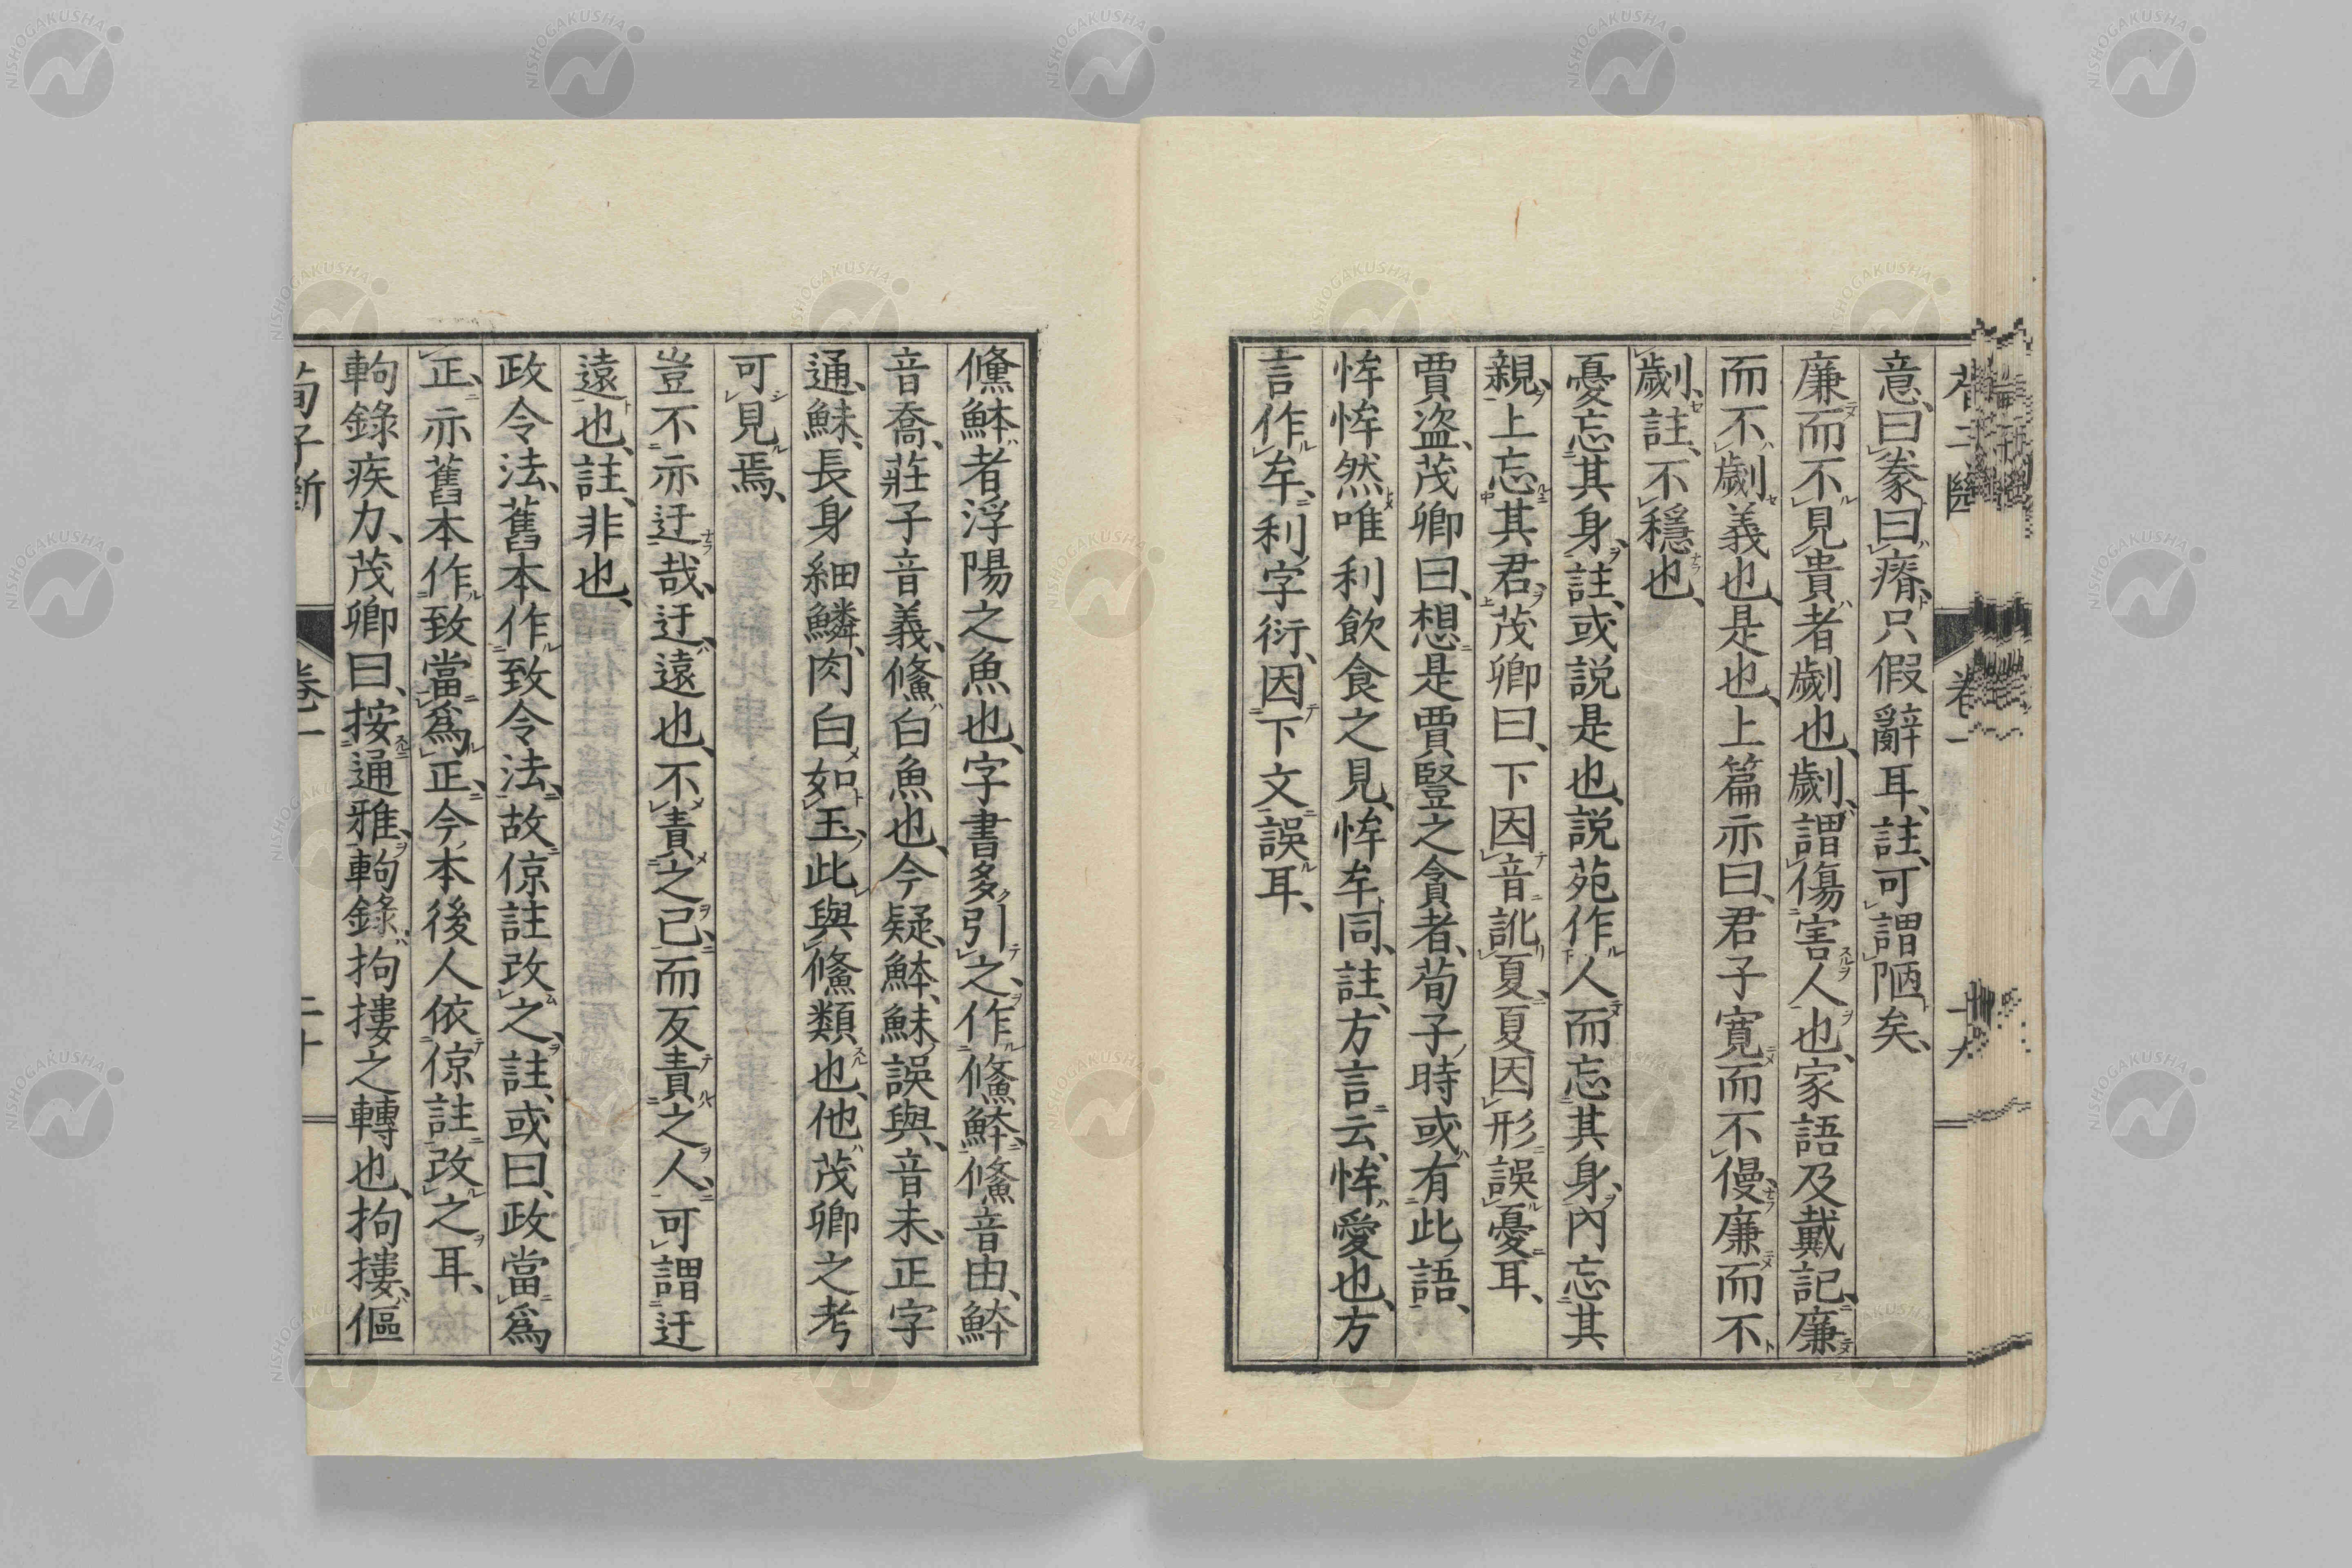 意、曰豢、曰瘠、只假辭耳、註、可謂陋矣、
廉而不見貴者劌也、劌、謂傷害人也、家語及戴記、廉
而不劌義也、是也、上篇亦曰、君子寬而不僈、廉而不
劌、註、不穩也、
憂忘其身、註、或説是也、説苑作人而忘其身、內忘其
親、上忘其君、茂卿曰、下因音訛夏、夏因形誤憂耳、
賈盜、茂卿曰、想是賈豎之貪者、荀子時或有此語、
恈恈然唯利飲食之見、恈牟同、註、方言云、恈愛也、方
言作牟、利字衍、因下文誤耳、
鯈䱁者浮陽之魚也、字書多引之、作鯈䱁、鯈音由、䱁
音喬、莊子音義、鯈白魚也、今疑、䱁、鮇誤與、音未、正字
通、鮇、長身細鱗、肉白如玉、此與鯈類也、他茂卿之考
可見焉、
豈不亦迂哉、迂、遠也、不責之己、而反責之人、可謂迂
遠也、註、非也、
政令法、舊本作致令法、故倞註改之、註、或曰、政當爲
正、亦舊本作致當爲正、今本後人依倞註改之耳、
軥錄疾力、茂卿曰、按通雅、軥錄、拘摟之轉也、拘摟、傴
荀子斷
卷一
二十
NISHOGAKUSHA